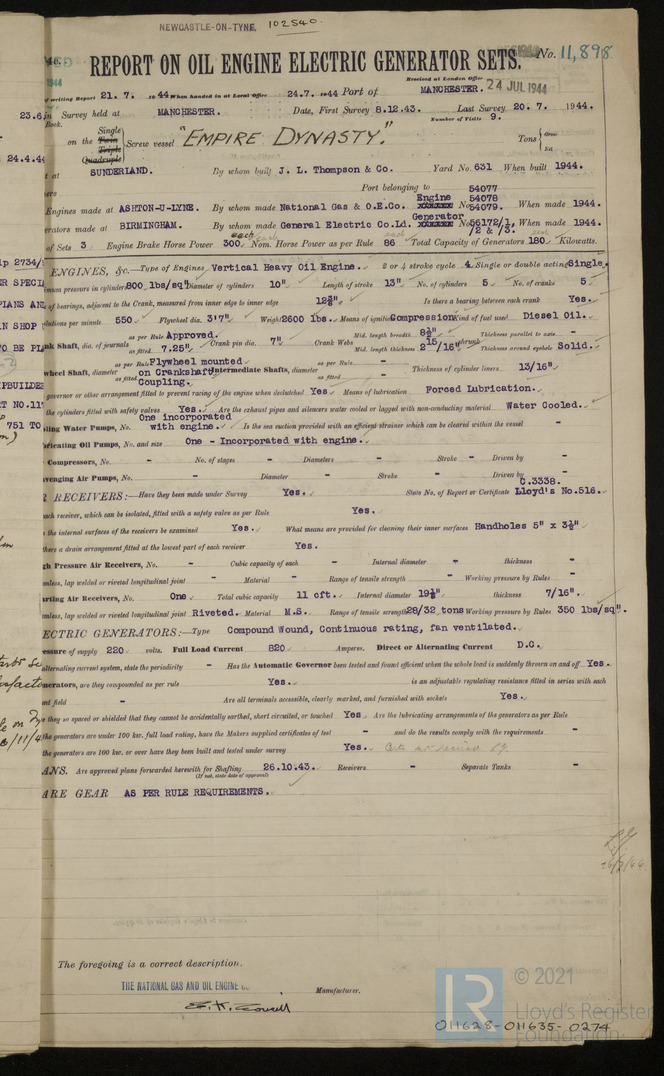 NEWCASTLE-ON-TYNE. 102540.
REPORT ON OIL ENGINE ELECTRIC GENERATOR SETS. No. 11,898
Received at London Office 24 JUL 1944
of writing Report 21. 7. 1944 When handed in at Local Office 24.7. 1944 Port of MANCHESTER.
in Survey held at MANCHESTER. Date, First Survey 8.12.43. Last Survey 20. 7. 1944.
Book. Number of Visits 9.
on the Single Twin Triple Quadruple Screw vessel "EMPIRE DYNASTY." Tons Gross Net
t at SUNDERLAND. By whom built J. L. Thompson & Co. Yard No. 631 When built 1944.
ers Port belonging to
Engines made at ASHTON-U-LYNE. By whom made National Gas & O.E.Co. Engine No. 54077 54078 54079. When made 1944.
erators made at BIRMINGHAM. By whom made General Electric Co.Ld. Generator No. 56172/1, /2 & /3. When made 1944.
of Sets 3 Engine Brake Horse Power each 300 Nom. Horse Power as per Rule 86 each Total Capacity of Generators 180 each Kilowatts.
ENGINES, &c.—Type of Engines Vertical Heavy Oil Engine. 2 or 4 stroke cycle 4 Single or double acting Single.
mum pressure in cylinders 800 lbs/sq" Diameter of cylinders 10" Length of stroke 13" No. of cylinders 5 No. of cranks 5
of bearings, adjacent to the Crank, measured from inner edge to inner edge 12⅝" Is there a bearing between each crank Yes.
olutions per minute 550 Flywheel dia. 3'7" Weight 2600 lbs. Means of ignition Compression Kind of fuel used Diesel Oil.
nk Shaft, dia. of journals as per Rule Approved. as fitted 7.25" Crank pin dia. 7" Crank Webs Mid. length breadth 8½" Mid. length thickness 2 15/16" Thickness parallel to axis - Thickness around eyehole Solid.
wheel Shaft, diameter as per Rule Flywheel mounted as fitted on Crankshaft Coupling. Intermediate Shafts, diameter as per Rule - as fitted - Thickness of cylinder liners 13/16"
governor or other arrangement fitted to prevent racing of the engine when declutched Yes Means of lubrication Forced Lubrication.
the cylinders fitted with safety valves Yes. Are the exhaust pipes and silencers water cooled or lagged with non-conducting material Water Cooled.
ling Water Pumps, No. One incorporated with engine. Is the sea suction provided with an efficient strainer which can be cleared within the vessel -
bricating Oil Pumps, No. and size One - Incorporated with engine.
Compressors, No. - No. of stages - Diameters - Stroke - Driven by -
venging Air Pumps, No. - Diameter - Stroke - Driven by -
R RECEIVERS:—Have they been made under Survey Yes. State No. of Report or Certificate C.3338. Lloyd's No.516.
ach receiver, which can be isolated, fitted with a safety valve as per Rule Yes.
the internal surfaces of the receivers be examined Yes. What means are provided for cleaning their inner surfaces Handholes 5" x 3½"
there a drain arrangement fitted at the lowest part of each receiver Yes.
gh Pressure Air Receivers, No. - Cubic capacity of each - Internal diameter - thickness -
mless, lap welded or riveted longitudinal joint - Material - Range of tensile strength - Working pressure by Rules -
arting Air Receivers, No. One Total cubic capacity 11 cft. Internal diameter 19½" thickness 7/16".
mless, lap welded or riveted longitudinal joint Riveted. Material M.S. Range of tensile strength 28/32 tons Working pressure by Rules 350 lbs/sq".
ECTRIC GENERATORS:—Type Compound Wound, Continuous rating, fan ventilated.
essure of supply 220 volts. Full Load Current 820 Amperes. Direct or Alternating Current D.C.
alternating current system, state the periodicity - Has the Automatic Governor been tested and found efficient when the whole load is suddenly thrown on and off Yes.
nerators, are they compounded as per rule Yes. is an adjustable regulating resistance fitted in series with each
nt field - Are all terminals accessible, clearly marked, and furnished with sockets Yes.
e they so spaced or shielded that they cannot be accidentally earthed, short circuited, or touched Yes Are the lubricating arrangements of the generators as per Rule
the generators are under 100 kw. full load rating, have the Makers supplied certificates of test - and do the results comply with the requirements -
the generators are 100 kw. or over have they been built and tested under survey Yes.
ANS. Are approved plans forwarded herewith for Shafting 26.10.43. Receivers - Separate Tanks -
(If not, state date of approval)
ARE GEAR AS PER RULE REQUIREMENTS.
The foregoing is a correct description.
THE NATIONAL GAS AND OIL ENGINE Co Manufacturer.
LR © 2021
Lloyd's Register
Foundation
011628-011635-0274